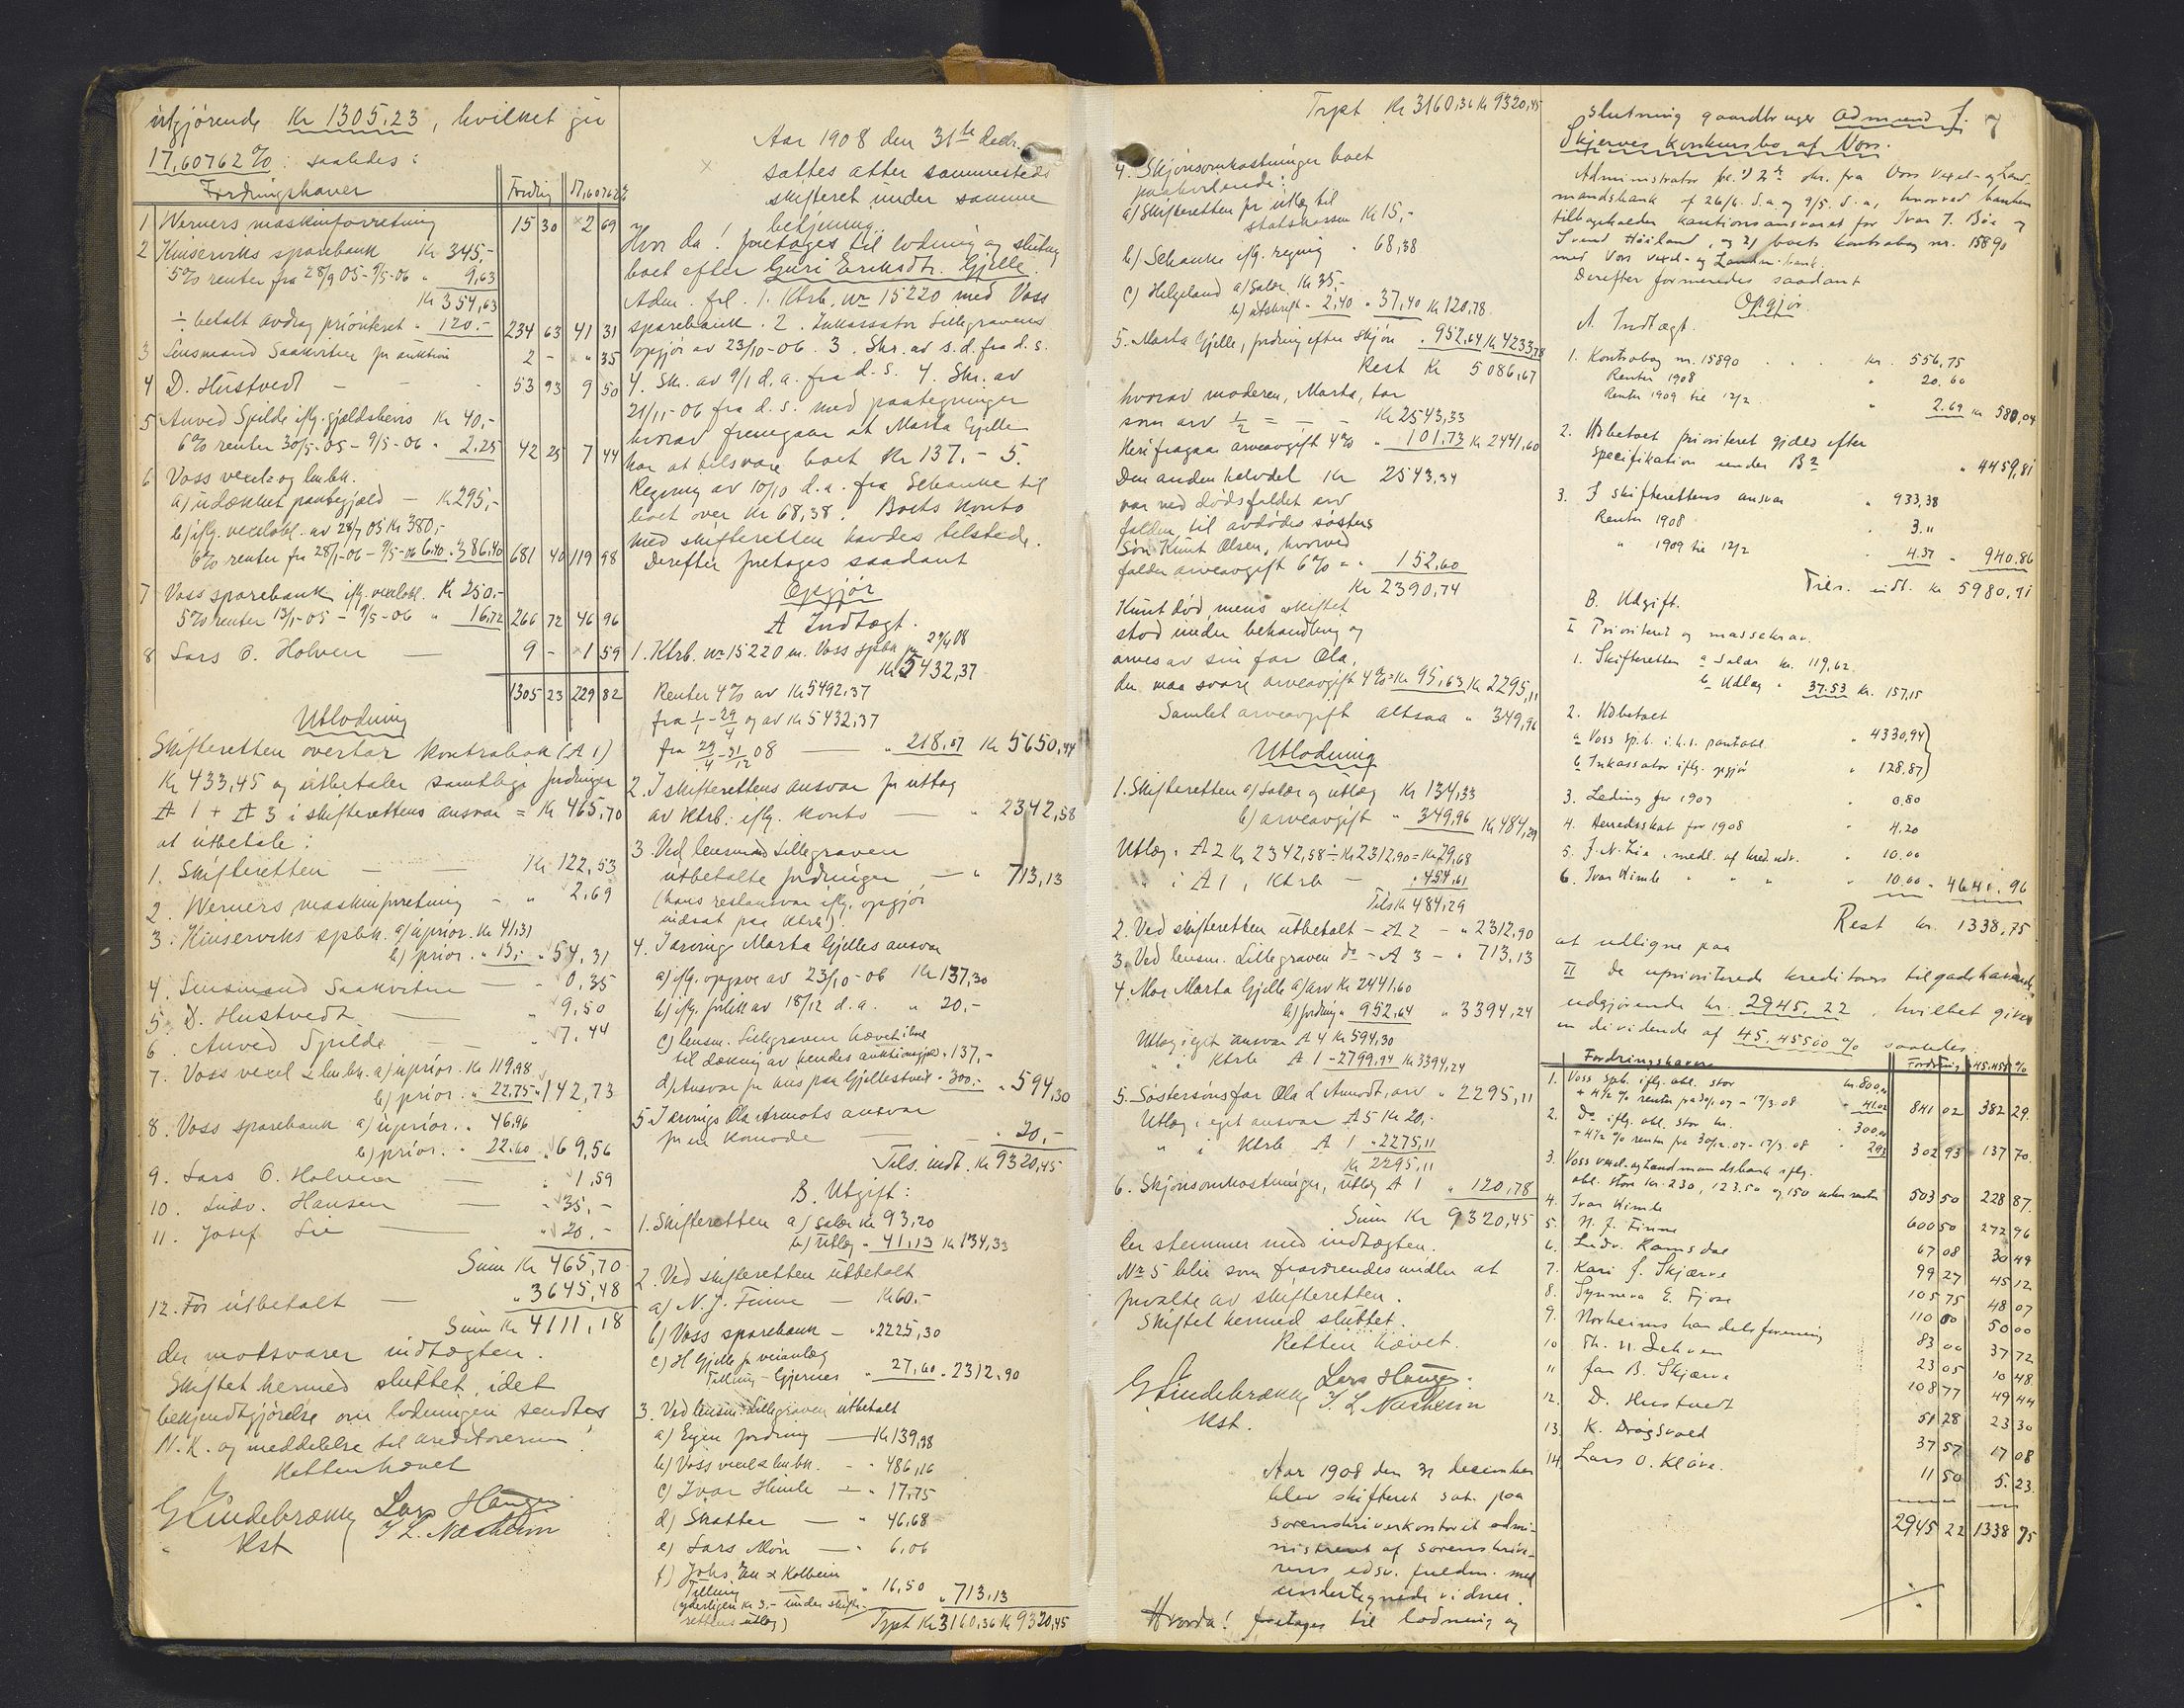 utgjørende Kr 1305.23, hvilket gir
17,60762%: saaledes:
Fordringshaver Fordring 17,60762%
1 Werners maskinforretning 15 30 2 69
2 Kinserviks sparebank Kr 345,-
5% renter fra 28/9 05 - 9/5-06 " 9,63
Kr 354,63
÷ betalt avdrag prioritert " 120.- 234 63 41 31
3 Lensmand Saakvitne for auktion 2 - " 35
4 D. Hustvedt — - - 53 93 9 50
5 Anved Spilde iflg. gjældsbevis Kr 40,-
6% renter 30/5-05 - 9/5-06 " 2,25 42 25 7 44
6 Voss vexel- og lmbk.
a) udækket pantegjæld — Kr 295,-
b) iflg. vexelobl. av 28/7 05 Kr 380,-
6% renter fra 28/1-06 - 9/5-06 6.40 " 386,40 681 40 119 98
7 Voss sparebank iflg. vexelobl. Kr 250.-
5% renter 13/1-05 - 9/5-06 " 16,72 266 72 46 96
8 Lars O. Holven — 9 - 1 59
1305 23 229 82
Utlodning
Skifteretten overtar kontrabok (A 1)
Kr 433,45 og utbetaler samtlige fordringer
A 1 + A 3 i skifterettens ansvar = Kr 465,70
at utbetale:
1. Skifteretten — — Kr 122,53
2. Werners maskinforretning - " 2,69
3. Kinserviks spbk. a) uprior. Kr 41,31
b) prior. " 13,- " 54,31
4. Lensmand Saakvitne — " 0,35
5. D. Hustvedt — " 9,50
6. Anved Spilde — " 7,44
7. Voss vexel & lmbk. a) uprior. Kr 119,98
b) prior. " 22.75 " 142,73
8. Voss sparebank a) uprior. " 46.96
b) prior. " 22.60 " 69,56
9. Lars O. Holven — " 1,59
10. Ludv. Hansen — " 35,-
11. Josef Lie — " 20.-
Sum Kr 465,70
12. Før utbetalt — " 3645,48
Sum Kr 4111,18
der motsvarer indtægten.
Skiftet hermed sluttet, idet
bekjendtgjørelse om lodningen sendtes
N. K. og meddelelse til kreditorerne.
Retten hævet
G Lindebrække Lars Haugen
Kst I. L. Nasheim
Aar 1908 den 31te decbr.
sattes atter sammesteds
skifteret under samme
betjening.
Hvor da! foretages til lodning og slutng
boet efter Guri Eriksdtr. Gjelle.
Adm. frl. 1. Ktrb. nr 15220 med Voss
sparebank. 2. Inkassator Lillegravens
opgjør av 23/10-06. 3. Skr. av s.d. fra d. s.
4. Skr. av 9/1 d.a. fra d. s. 4. Skr. av
21/11-06 fra d. s. med paategninger
hvorav fremgaar at Marta Gjelle
har at tilsvare boet Kr 137.- 5.
Regning av 10/10 d.a. fra Schanke til
boet over Kr 68,38. Boets konto
med skifteretten havdes tilstede.
Derefter foretages saadant
Opgjør
A Indtægt.
1. Ktrb. nr 15220 m. Voss spbk pr 29/4 08
Kr 5432,37
Renter 4% av Kr 5492.37
fra 1/1 - 29/4 og av Kr 5432,37
fra 29/4 - 31/12 08 — " 218,57 Kr 5650,94
2. I skifterettens ansvar for uttag
av Ktrb. iflg. konto — " 2342,58
3. Ved lensmand Lillegraven
utbetalte fordringer — " 713,13
(hans restansvar iflg. opgjør
indsat paa Ktrb).
4. I arving Marta Gjelles ansvar
a) iflg. opgave av 23/10-06 Kr 137,30
b) iflg. forlik av 18/12 d.a. " 20.-
c) lensm. Lillegraven hævet
til dækning av hendes auktionsgjæld " 137,-
d) Ansvar for hus paa Gjellestveit " 300.- " 594,30
5. I arvings Ola Armots ansvar
for en komode — " 20,-
Tils. indt. Kr 9320,45
B. Utgift:
1. Skifteretten a) salær Kr 93,20
b) Utlæg " 41,13 Kr 134,33
2. Ved skifteretten utbetalt
a) N. J. Finne — Kr 60.-
b) Voss sparebank — " 2225,30
c) H Gjelle for veianlæg
Tillung - Gjernes " 27,60 " 2312,90
3. Ved lensm. Lillegraven utbetalt
a) Egen fordring — Kr 139,98
b) Voss vexel & lmbk. — " 486,16
c) Ivar Himle — " 17.75
d) Skatter — " 46,68
e) Lars Møn — " 6,06
f) Johs. & Kolbein
Tillung — " 16,50 " 713,13
(yderligere kr 3.- under skifte-
rettens utlæg)
Trpt Kr 3160,36 Kr 9320,45
Trpt Kr 3160,36 Kr 9320,45
4. Skjønsomkostninger boet
paahvilende:
a) Skifteretten for utlæg til
statskassen Kr 15,-
b) Schanke iflg. regning " 68,38
c) Helgeland a) salær Kr 35.-
b) utskrift " 2,40 " 37,40 Kr 120,78
5. Marta Gjelle, fordring efter skjøn " 952,64 Kr 4233,78
Rest Kr 5086,67
hvorav moderen, Marta, tar
som arv 1/2 = — — Kr 2543,33
Herifragaar arveavgift 4% " 101,73 Kr 2441,60
Den anden halvdel Kr 2543,34
var ved dødsfaldet arv
falden til avdødes søsters
søn Knut Olsen, hvorved
falder arveavgift 6% = " 152,60
Kr 2390,74
Knut død, mens skiftet
stod under behandling og
arves av sin far Ola,
der maa svare arveavgift 4% = Kr 95,63 Kr 2295,11
Samlet arveavgift altsaa " 349,96
Utlodning
1. Skifteretten a) salær og utlæg Kr 134,33
b) arveavgift " 349,96 Kr 484,29
Utlæg: A 2 Kr 2342,58 ÷ Kr 2312,90 = Kr 29,68
" i A 1, Ktrb — " 454,61
Tils Kr 484,29
2. Ved skifteretten utbetalt - A 2 - " 2312,90
3. Ved lensm. Lillegraven do - A 3 - " 713,13
4. Mor Marta Gjelle a) arv Kr 2441,60
b) fordring " 952,64 " 3394,24
Utlæg i eget ansvar A 4 Kr 594,30
" i Ktrb A 1 - 2799,94 Kr 3394,24
5. Søstersøns far Ola L Armodt, arv " 2295,11
Utlæg i eget ansvar A 5 Kr 20,-
" i Ktrb A 1 " 2275,11
Kr 2295,11
6. Skjønsomkostninger, utlæg A 1 " 120,78
Sum Kr 9320,45
der stemmer med indtægten.
Nr 5 blir som fraværendes midler at
forvalte av skifteretten.
Skiftet hermed sluttet.
Retten hævet.
G Lindebrække Lars Haugen.
Kst. I. L. Nasheim
Aar 1908 den 31 december
blev skifteret sat paa
sorenskriverkontoret admi-
nistreret af sorenskrive-
rens edsv. fuldm. med
undertegnede vidner.
Hvorda! foretages til lodning og
7
slutning gaardbruger Admund J.
Skjerves konkursbo af Voss.
Administrator frl. 1) 2de skr. fra Voss vexel- og Land-
mandsbank af 26/6. s.a. og 9/5. d.a., hvorved banken
tilbagekalder kautionsansvaret for Ivar J. Bøe og
Svend Høiland, og 2) boets kontrabog nr. 15890
med Voss vexel- og Landm.bank.
Derefter formeredes saadant
Opgjør.
A. Indtægt.
1. Kontrabog nr. 15890 . . . kr. 556,75
Renter 1908 " 20.60
Renter 1909 til 12/2 " 2.69 kr 580,04
2. Udbetalt prioriteret gjæld efter
specifikation under B 2 " 4459,81
3. I skifterettens ansvar " 933,38
Renter 1908 " 3."
" 1909 til 12/2 " 4.37 " 940.86
Tils. indt. kr 5980,71
B. Udgift.
I Prioriteret og massekrav.
1. Skifteretten a salær kr. 119,62.
b Udlæg " 37.53 kr. 157,15
2. Udbetalt
a Voss sp.b. i.h.t. pantobl. " 4330,94
b Inkassator iflg. opgjør " 128,87
3. Leding for 1907 " 0.80
4. Herredsskat for 1908 " 4,20
5. J. N. Lie, medl. af kred.udv. " 10.00
6. Ivar Himle " " " " 10.00 " 4641,96
Rest kr. 1338,75
at udligne paa
II de uprioriterede kreditorers tilgodehavende,
udgjørende kr. 2945.22, hvilket giver
en dividende af 45,45500% saaledes:
Fordringshaver Fordring 45,455%
1. Voss spb. iflg. obl. stor kr. 800,00
+ 4 1/2 % renter fra 30/1.07 - 17/3.08 " 41.02 841 02 382 29.
2. Do iflg. obl. stor kr. " 300,00
+ 4 1/2 % renter fra 30/12.07 - 17/3.08 " 2.93 302 93 137 70.
3. Voss vexel- og Landmandsbank iflg.
obl. store kr. 230, 123.50 og 150 uden renter 503 50 228 87.
4. Ivar Himle 600 50 272 96
5. N. J. Finne 67 08 30 49
6. Ludv. Ramsdal 99 27 45 12
7. Kari J. Skjærve 105 75 48 07
8. Synneva E. Fjose 110 00 50 00
9. Norheims handelsforening 83 00 37 72
10 Th. N. 23 05 10 48
11 Jan B. Skjærve 108 77 49 44
12. D. Hustvedt 51 28 23 30
13. K. Drøgsvold 37 57 17 08
14. Lars O. Kløve. 11 50 5.23.
2945 22 1338 75